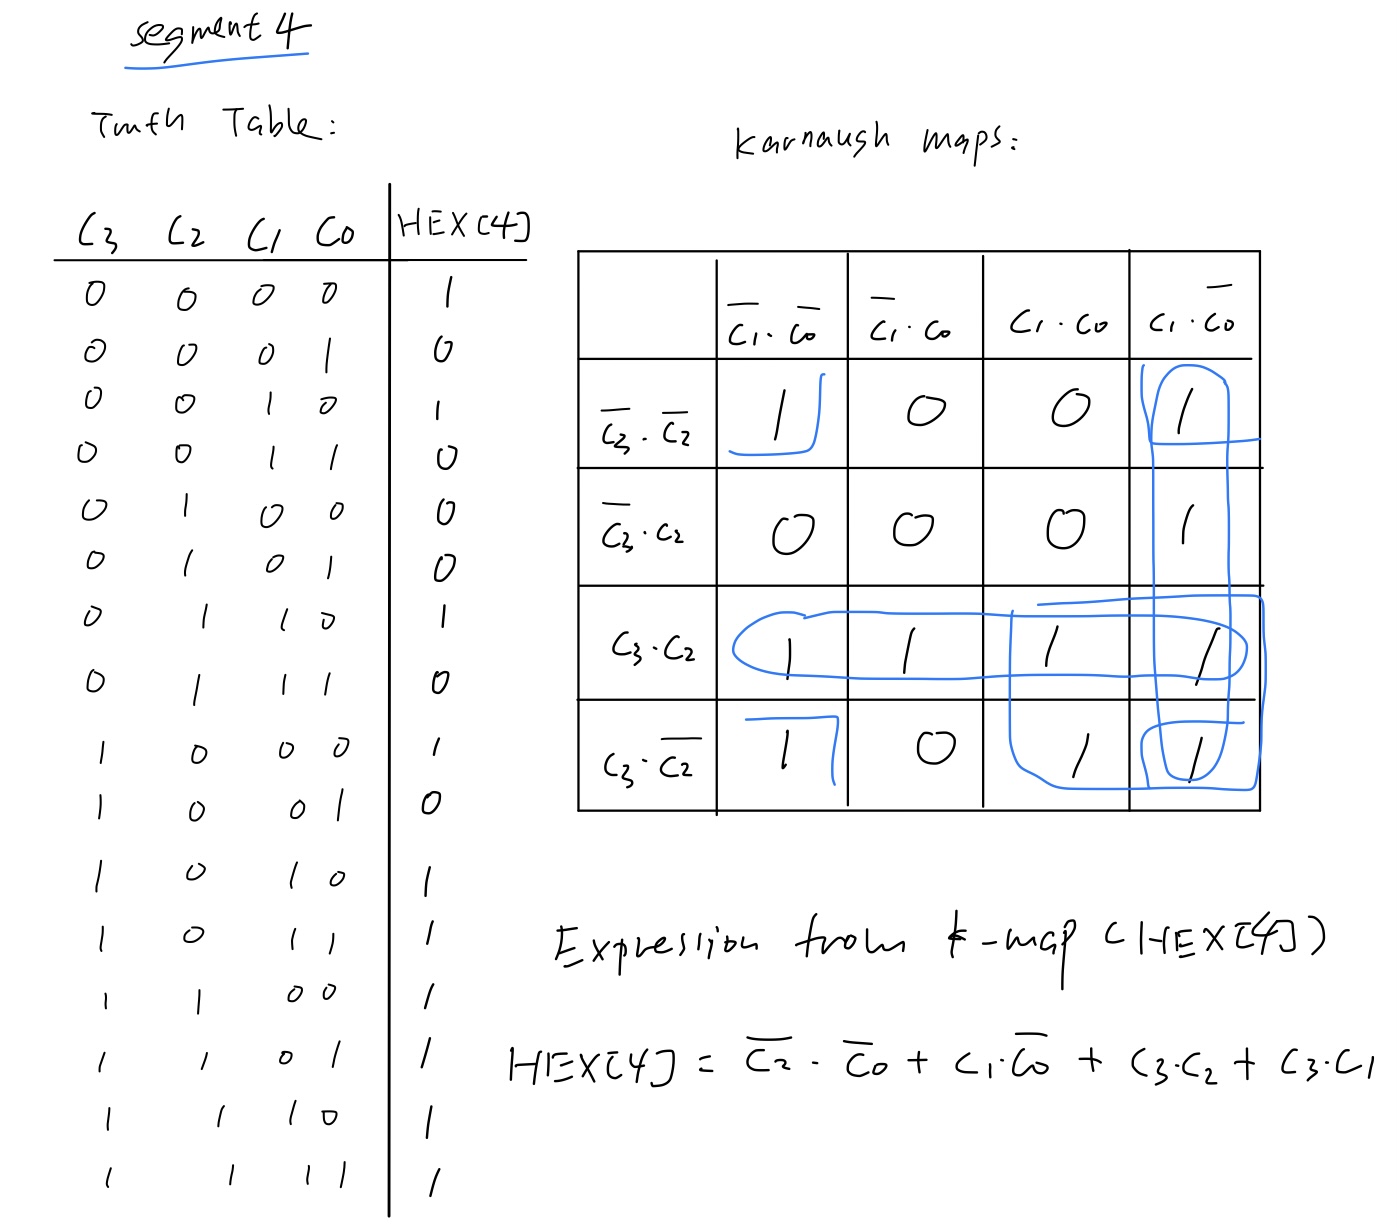 segment 4
Truth Table:
Karnaugh maps:
C3 C2 C1 C0 HEX[4]
0 0 0 0 1
0 0 0 1 0
0 0 1 0 1
0 0 1 1 0
0 1 0 0 0
0 1 0 1 0
0 1 1 0 1
0 1 1 1 0
1 0 0 0 1
1 0 0 1 0
1 0 1 0 1
1 0 1 1 1
1 1 0 0 1
1 1 0 1 1
1 1 1 0 1
1 1 1 1 1
C̅1·C̅0 C̅1·C0 C1·C0 C1·C̅0
C̅3·C̅2 1 0 0 1
C̅3·C2 0 0 0 1
C3·C2 1 1 1 1
C3·C̅2 1 0 1 1
Expression from k-map (HEX[4])
HEX[4] = C̅2·C̅0 + C1·C̅0 + C3·C2 + C3·C1